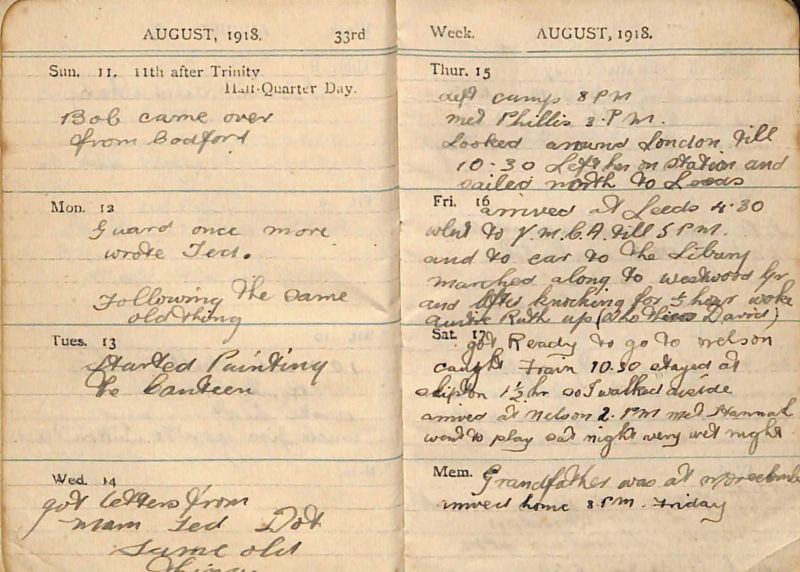 AUGUST, 1918. 33rd
Sun. 11. 11th after Trinity.
Half-Quarter Day.
Bob came over
from Bedford
Mon. 12
Guard once more
wrote Ted.
Following the same
old thing
Tues. 13
Started Painting
the Canteen
Wed. 14
got letters from
mam Ted Dot
Same old
thing
Week. AUGUST, 1918.
Thur. 15
left camp 8 PM
met Phillis 3. P.M.
Looked around London till
10-30 Left her on station and
sailed north to Leeds
Fri. 16
arrived at Leeds 4.30
went to Y.M.C.A. till 5 P.M.
and to car to the Libury
marched along to Westwood Gr
and after knocking for ½ hour woke
auntie Ruth up (who David)
Sat. 17
got Ready to go to nelson
caught Train 10.30 stayed at
skipton 1½ hr so I walked
arrived at Nelson 2. PM met Hannah
went to play sat night very wet night
Mem.
Grandfather was at
arrived home 8 P.M. Friday